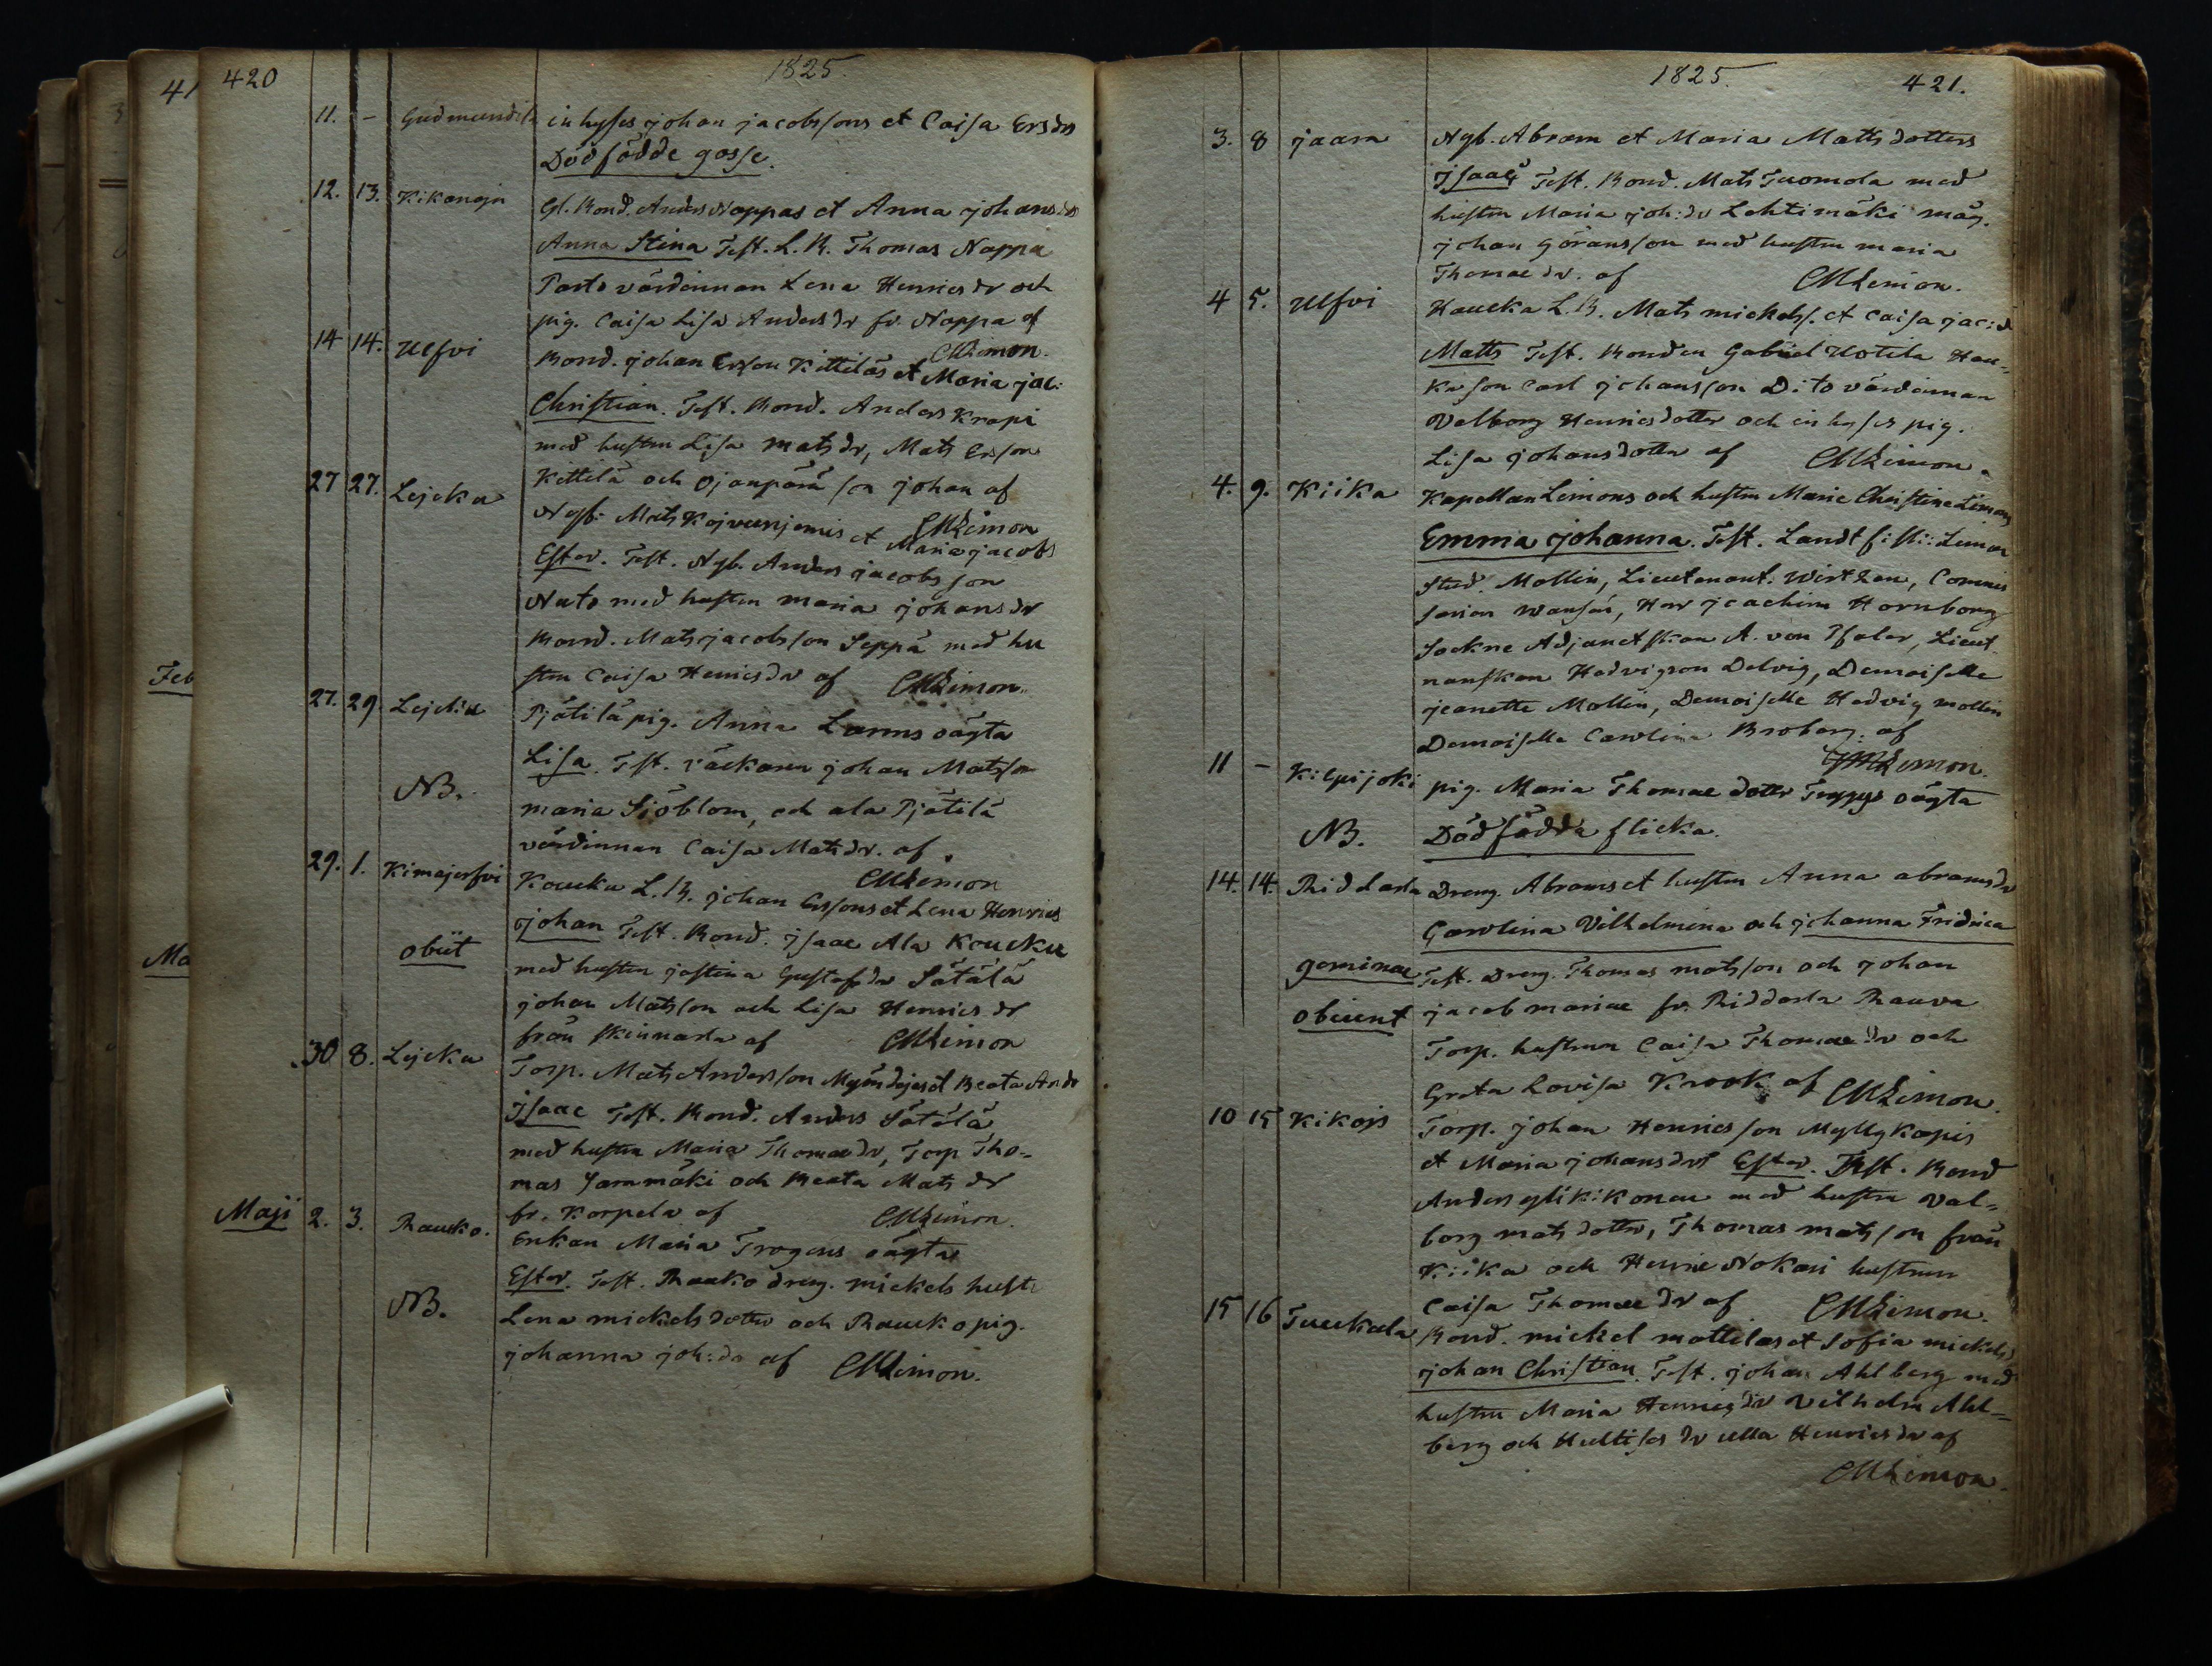 420 1825.
11. - Gudmundila inhyses johan jacobssons et Caisa Ersdrs
Dödfödde gosse.
12. 13. Kikanoja Gl. Bond. Anders Nappas et Anna johansdr
Anna Stina Test. L. B. Thomas Nappa
Parto värdinnan Lena Henricsdr och
pig. Caisa Lisa Andersdr fr. Nappa af
CMLimon.
14 14. Ulfvi Bond. johan Ersson Kittiläs et Maria jac:
Christian. Test. Bond. Anders Krapi
med hustru Lisa matsdr, Mats Ersson
Kittilä och Ojanperä son johan af
CMLimon
27 27. Lejcku Nyb. Mats Kojvunjemis et Maria jacobs
Ester. Test. Nyb. Anders jacobsson
med hustru maria johansdr
Bond. Mats jacobsson Seppä med hu
stru Caisa Henricsdr af CMLimon.
27. 29. Lejcku Pjätilä pig. Anna oägta
NB. Lisa. Test. johan Matsson
maria Sjöblom, och ala Pjätilä
värdinnan Caisa Matsdr. af
CMLimon
29. 1. Kimajerfvi Koucku L. B. johan Erssons et Lena Henrics
johan Test. Bond. jsaac Ala Koucku
obiit med hustru justina Gustafsdr Sätälä
johan Matsson och Lisa Henricsdr
från Skinnarla af CMLimon
30 8. Lejcku Torp. Mats Andersson et Beata Andr
jsaac Test. Bond. Anders Sätälä
med hustru Maria Thomaedr, Torp Tho-
mas Jarnmäki och Beata Matsdr
fr. Korpela af CMLimon.
Maji 2. 3. Raucko. Enkan Maria Trogens oägta
Ester. Test. Raucko dreng. mickels hustr
NB. Lena mickelsdotter och Raucko pig.
johanna joh:dr af CMLimon.
1825. 421.
3. 8 jaara Nyb. Abram et Maria Mattsdotters
jsaac Test. Bond. Mats Tuomola med
hustru Maria joh:dr Lehtimäki måg.
johan Göransson med hustru maria
Thomaedr. af CMLimon.
4 5. Ulfvi Haucka L. B. Mats mickelss. et Caisa jac:d
Matts Test. Bonden Gabriel Uotila Hau-
ka son Carl johansson Dito värdinnan
Valborg Henricsdotter och inhyses pig.
Lisa johansdotter af CMLimon.
4. 9. Kiika Kapellan Limons och hustru Maria Christina Limons
Emma johanna. Test. Landtfisk: Limon
Stud. Mollin, Lieutenant. Wirtzen, Commis
sarien Wansén, Herr joachim Hornborg
Sockne Adjunctskan A. von Pfaler, Lieut
nanskan Hedvigson Delvig, Demoiselle
jeanette Mollin, Demoiselle Hedvig mollin
Demoiselle Carolina Broberg. af
CMLimon.
11 - Kilpijoki pig. Maria Thomae dotter oägta
NB. Dödfödda flicka.
14. 14. Riddarla Dreng. Abrams et hustru Anna abramsdr
Carolina Vilhelmina och johanna Fridrica
geminae Test. Dreng. Thomas matsson och johan
obierunt jacob mariae fr. Riddarla Rauva
Torp. hustrun Caisa Thomaedr och
Greta Lovisa Krook af CMLimon.
10 15 Kikojs Torp. johan Henricsson Myllykopis
et Maria johansdrs Ester. Test. Bond
Anders yli Kikonen med hustru Val-
borg matsdotter, Thomas matsson från
Kiika och Henric Nokari hustrun
Caisa Thomaedr af CMLimon.
15 16 Tuuckala Bond. mickel mattilas et Sofia mickels
johan Christian. Test. johan Ahlberg med
hustru Maria Henricsdr Vilhelm Ahl-
berg och dr ulla Henricsdr af
CMLimon.
Feb
Ma